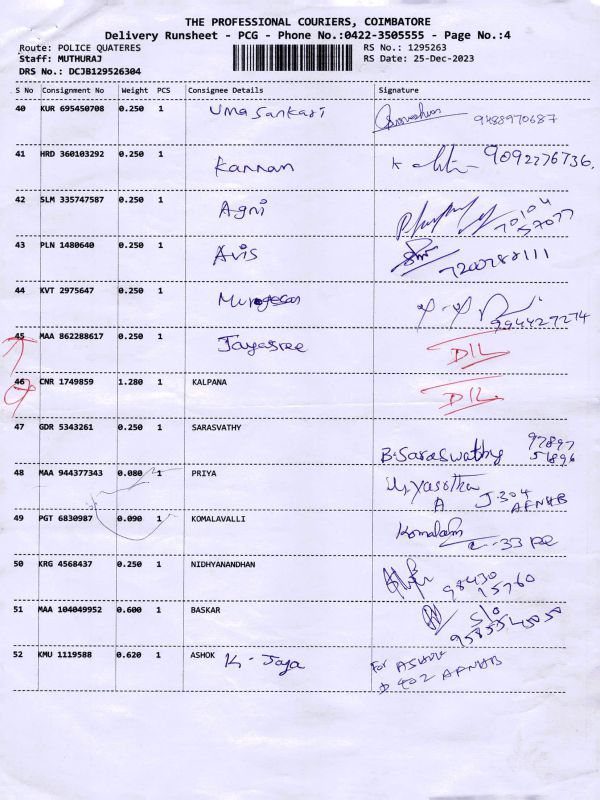 THE PROFESSIONAL COURIERS, COIMBATORE
Delivery Runsheet - PCG - Phone No.:0422-3505555 - Page No.:4
Route: POLICE QUATERES RS No.: 1295263
Staff: MUTHURAJ RS Date: 25-Dec-2023
DRS No.: DCJB129526304
S No Consignment No Weight PCS Consignee Details Signature
40 KUR 695450708 0.250 1 Uma Sankari 9488970687
41 HRD 360103292 0.250 1 Kannan 9092276736.
42 SLM 335747587 0.250 1 Agni 70104
57077
43 PLN 1480640 0.250 1 Avis 7200782111
44 KVT 2975647 0.250 1 Murugesan
994427274
45 MAA 862288617 0.250 1 Jayasree DIL
46 CNR 1749859 1.280 1 KALPANA DIL
47 GDR 5343261 0.250 1 SARASVATHY B.Saraswathy 97897
56896
48 MAA 944377343 0.080 1 PRIYA Yasotha
A J-304
AFNHB
49 PGT 6830987 0.090 1 KOMALAVALLI Komalam
C-33 PR
50 KRG 4568437 0.250 1 NIDHYANANDHAN 98430
15760
51 MAA 104049952 0.600 1 BASKAR S/o
9585545050
52 KMU 1119588 0.620 1 ASHOK K. Jaya For ASHOK
D 402 AFNHB